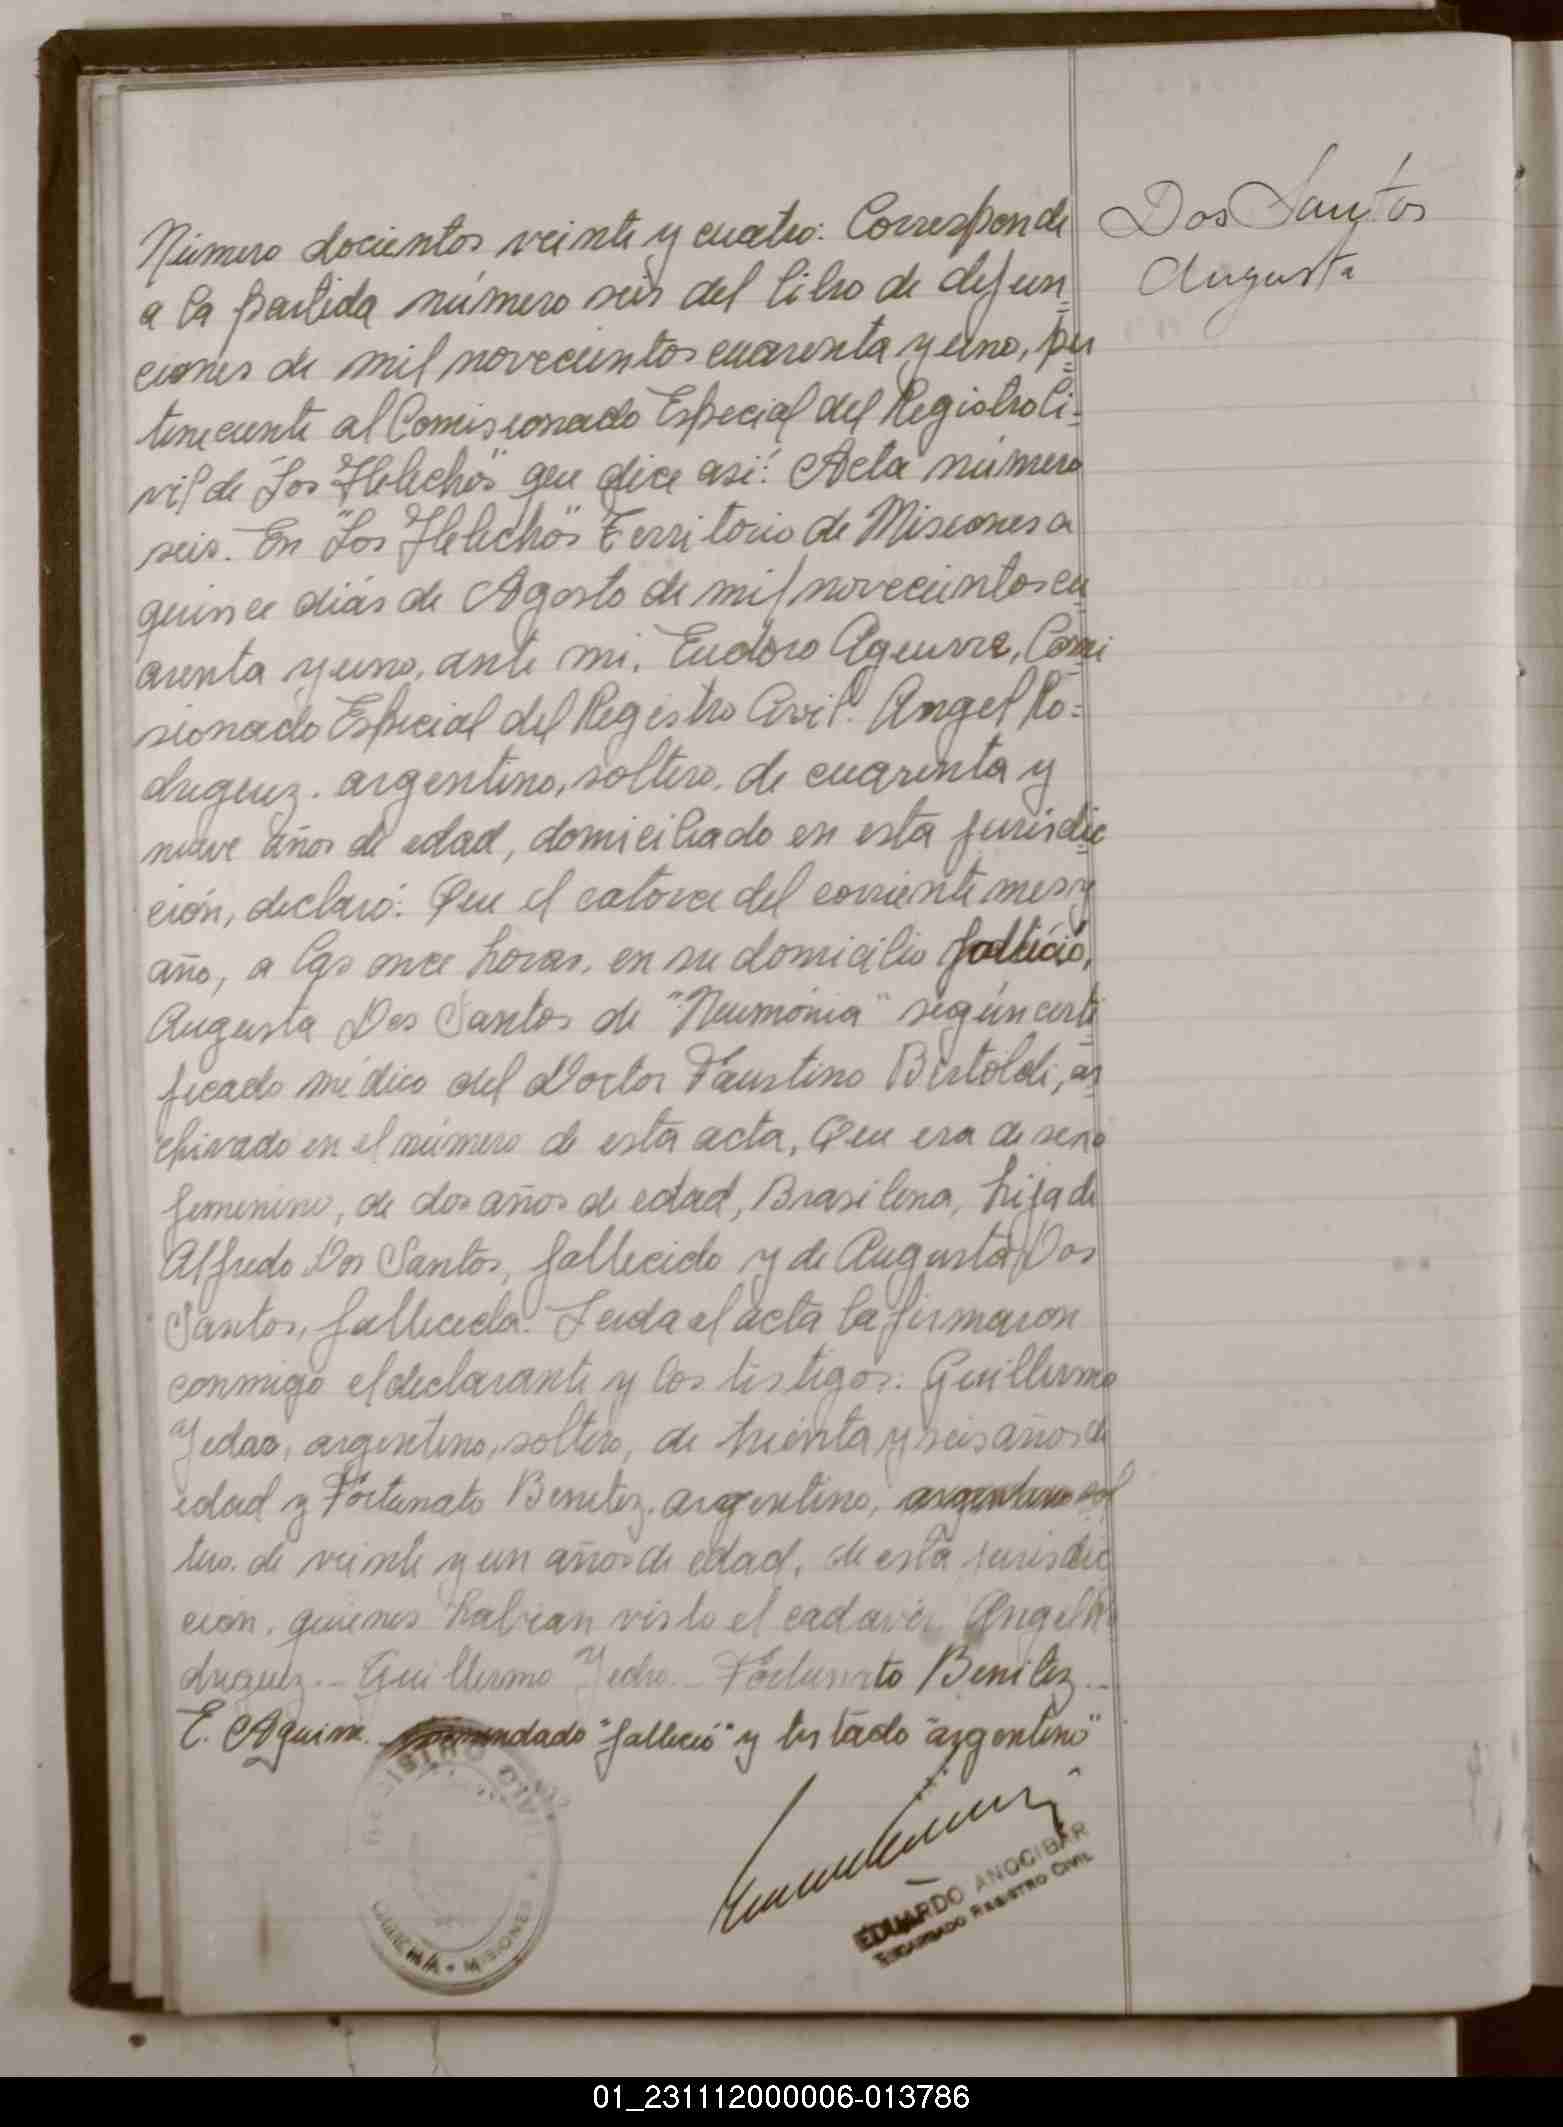 Número docientos veinte y cuatro: Corresponde
a la partida número seis del libro de defun=
ciones de mil novecientos cuarenta y uno, per=
teneciente al Comisionado Especial del Registro Ci=
vil de "Los Helechos" que dice así: Acta número
seis. En "Los Helechos" Territorio de Misiones a
quince diás de Agosto de mil novecientos cu=
arenta y uno, ante mi, Eudoro Aguirre, Comi=
sionado Especial del Registro Civil: Angel Ro=
driguez, argentino, soltero, de cuarenta y
nueve años de edad, domiciliado en esta jurisdic=
ción, declaró: Que el catorce del corriente mes y
año, a las once horas, en su domicilio falleció,
Augusta Dos Santos de "Neumonia" según certi=
ficado médico del Doctor Faustino Bertoldi, ar=
chivado en el número de esta acta, Que era de sexo
femenino, de dos años de edad, Brasilena, hija de
Alfredo Dos Santos, fallecido y de Augusta Dos
Santos, fallecida. Leida el acta la firmaron
conmigo el declarante y los testigos: Guillermo
argentino, soltero, de treinta y seis años de
edad y Fortunato Benitez, argentino, argentino sol
tero, de veinte y un años de edad, de esta jurisdic
ción, quienes habian visto el cadaver. Angel Ro
driguez.- Guillermo Fortunato Benitez.-
E. Aguirre. "falleció" y testado "argentino"
REGISTRO CIVIL
MISIONES
EDUARDO ANOCIBAR
ENCARGADO REGISTRO CIVIL
Dos Santos
Augusta
01_231112000006-013786